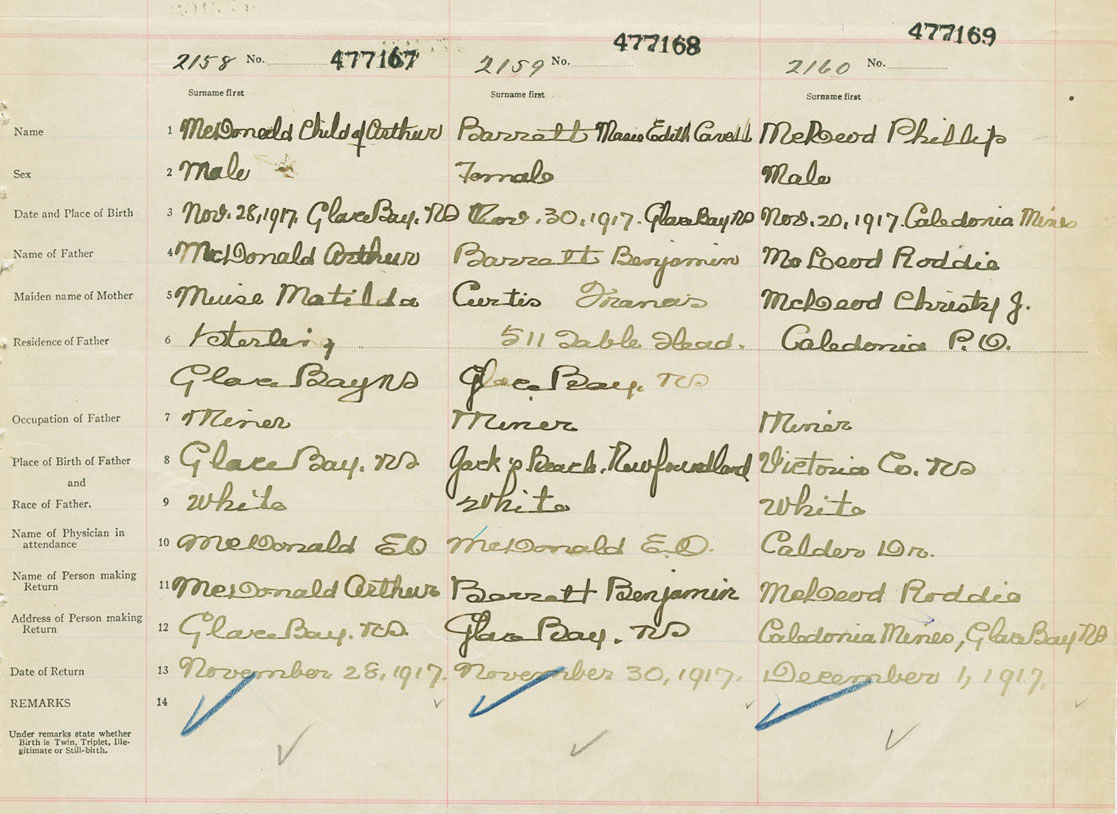 477167 477168 477169
2158 No. 2159 No. 2160 No.
Surname first Surname first Surname first
Name 1 McDonald Child of Arthur Barrett Marie Edith Cavell McLeod Phillip
Sex 2 Male Female Male
Date and Place of Birth 3 Nov. 28, 1917. Glace Bay. NS Nov. 30, 1917. Glace Bay NS Nov. 20, 1917. Caledonia Mines
Name of Father 4 McDonald Arthur Barrett Benjamin McLeod Roddie
Maiden name of Mother 5 Muise Matilda Curtis Frances McLeod Christy J.
Residence of Father 6 Sterling 511 Table Head. Caledonia P.O.
Glace Bay NS Glace Bay. NS
Occupation of Father 7 Miner Miner Miner
Place of Birth of Father 8 Glace Bay. NS Newfoundland Victoria Co. NS
and
Race of Father. 9 White White White
Name of Physician in
attendance 10 McDonald EO McDonald E.O. Calder Dr.
Name of Person making
Return 11 McDonald Arthur Barrett Benjamin McLeod Roddie
Address of Person making
Return 12 Glace Bay. NS Glace Bay. NS Caledonia Mines, Glace Bay NS
Date of Return 13 November 28, 1917. November 30, 1917. December 1, 1917.
REMARKS 14
Under remarks state whether
Birth is Twin, Triplet, Ille-
gitimate or Still-birth.